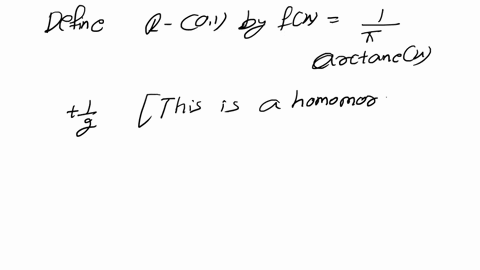 Define R - (0,1) by f(x) = 1/π
arctane(x)
+ 1/2 [This is a homomor